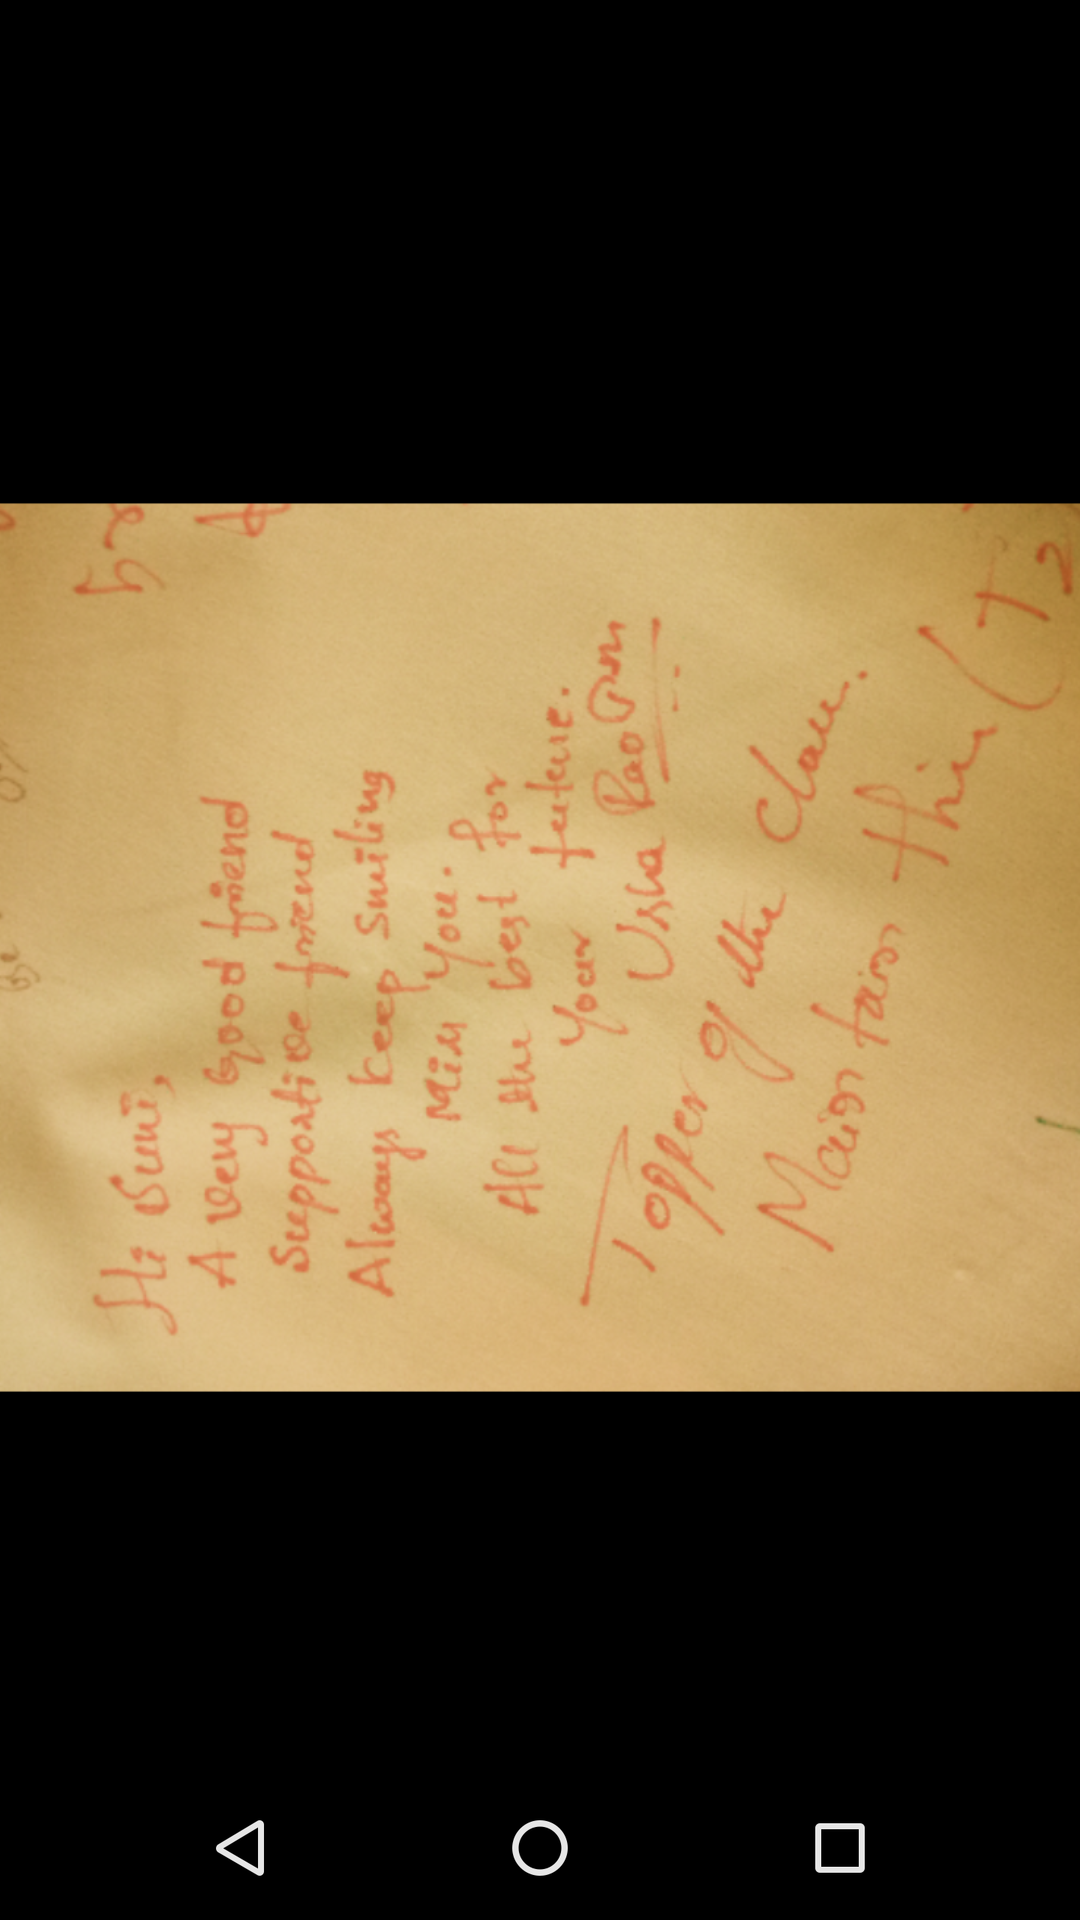 Hi Sumi,
A very Good friend
Supportive friend
Always keep smiling
Miss You.
All the best for
Your future.
Usha Rao
Topper of the class.
Maintain this (